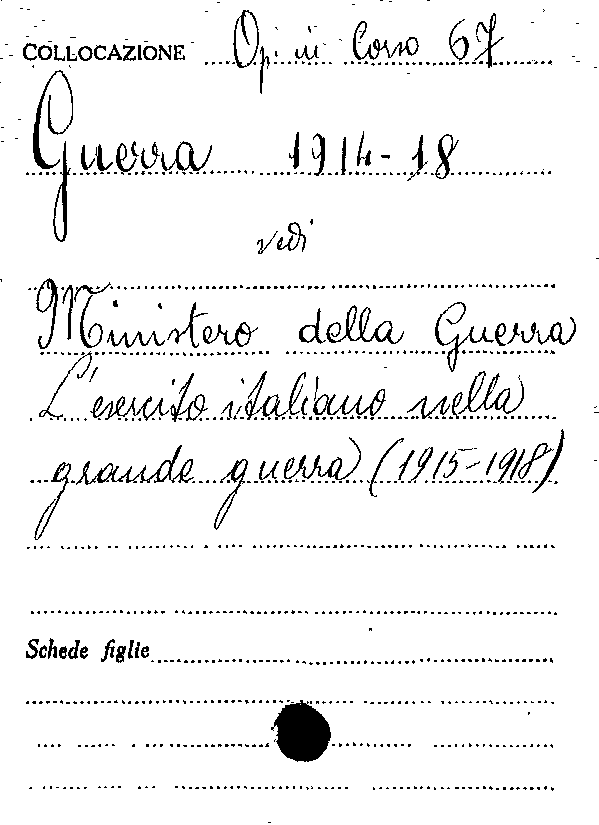 COLLOCAZIONE Op. in Corso 67
Guerra 1914-18
vedi
Ministero della Guerra
L'esercito italiano nella
grande guerra (1915-1918)
Schede figlie